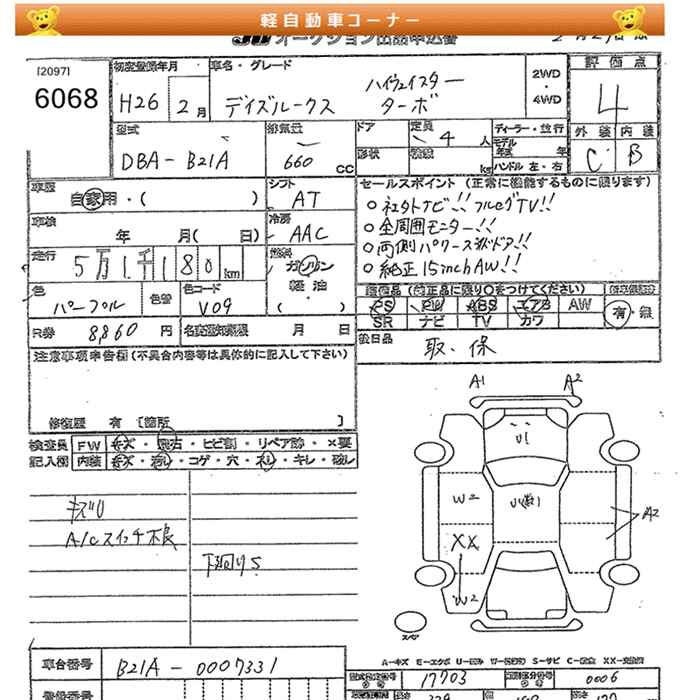 軽自動車コーナー
JU オークション出品申込書
[2097]
6068
初度登録年月
H26 2月
車名・グレード
デイズルークス ハイウェイスター
ターボ
2WD
・
4WD
評価点
4
外装 内装
C B
型式
DBA-B21A
排気量
660 CC
ドア
定員
4人
形状
積載
kg
ディーラー・並行
モデル年式 年
ハンドル 左・右
車歴
自家用・( )
シフト
AT
車検
年 月( 日)
冷房
AAC
走行
5万1千180km
燃料
ガソリン
軽油
( )
色
パープル
色替
色コード
V09
R券 8,860円
名変期限 月 日
セールスポイント (正常に機能するものに限ります)
○社外ナビ!!フルセグTV!!
○全周囲モニター!!
○両側パワースライドドア!!
○純正15inchAW!!
装備品 (純正品に限り○をつけてください)
PS PW ABS エアB AW
SR ナビ TV カワ
有・無
後日品
取・保
注意事項申告欄(不具合内容等は具体的に記入して下さい)
修復歴 有 [箇所 ]
検査員 FW キズ・飛石・ヒビ割・リペア跡・×要
記入欄 内装 キズ・汚レ・コゲ・穴・スレ・キレ・破レ
キズU
A/Cスイッチ不良
下廻りS
A1 A2
U1
W2
XX
W2
A2
スペア
A-キズ E-エクボ U-凹み W-波打ち S-サビ C-腐食 XX-交換済
車台番号 B21A-0007331
型式指定番号 17703
類別区分番号 0006
登録番号